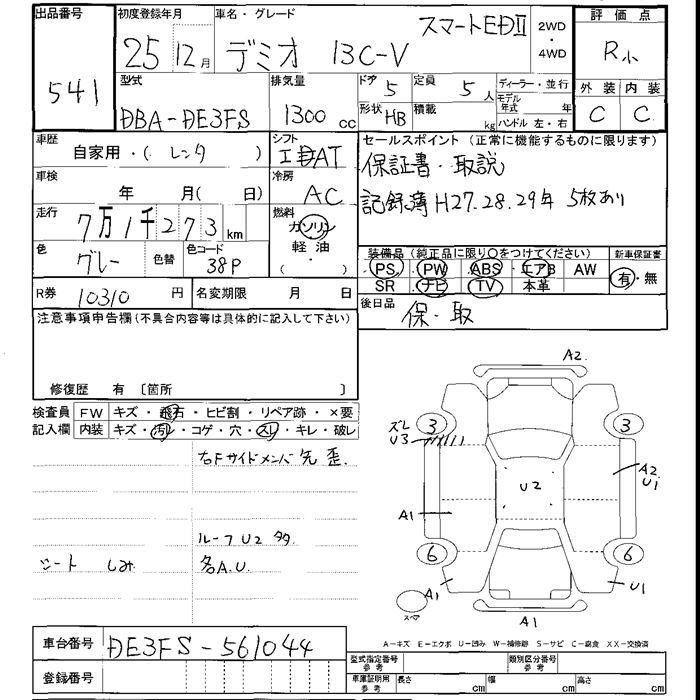 出品番号 初度登録年月 車名・グレード 評価点
541 25 12月 デミオ 13C-V スマートEDⅡ 2WD・4WD R小
型式 排気量 ドア 5 定員 5人 ディーラー・並行 外装 内装
DBA-DE3FS 1300cc 形状 HB 積載 kg モデル年式 年 ハンドル 左・右 C C
車歴 自家用・(レンタ) シフト セールスポイント (正常に機能するものに限ります)
車検 年 月( 日) 冷房 AC 保証書・取説
走行 7万1千273km 燃料 ガソリン・軽油・( ) 記録簿H27.28.29年 5枚あり
色 グレー 色替 色コード 38P 装備品 (純正品に限り○をつけてください) 新車保証書
PS PW ABS エアB AW 有・無
SR ナビ TV 本革
R券 10310円 名変期限 月 日 後日品
保・取
注意事項申告欄(不具合内容等は具体的に記入して下さい)
修復歴 有 〔箇所 〕
検査員 FW キズ・飛石・ヒビ割・リペア跡・×要
記入欄 内装 キズ・汚レ・コゲ・穴・スレ・キレ・破レ
右Fサイドメンバ先歪.
ルーフU2多
シート しみ 各A.U.
A2
ズレ
U3 3 3
A2
U1
U2
A1
6 6
A1 U1
スペア
A1
車台番号 DE3FS-561044
登録番号
A-キズ E-エクボ U-凹み W-補修跡 S-サビ C-腐食 XX-交換済
型式指定番号 参考 類別区分番号 参考
車庫証明用 参考 長さ cm 幅 cm 高さ cm